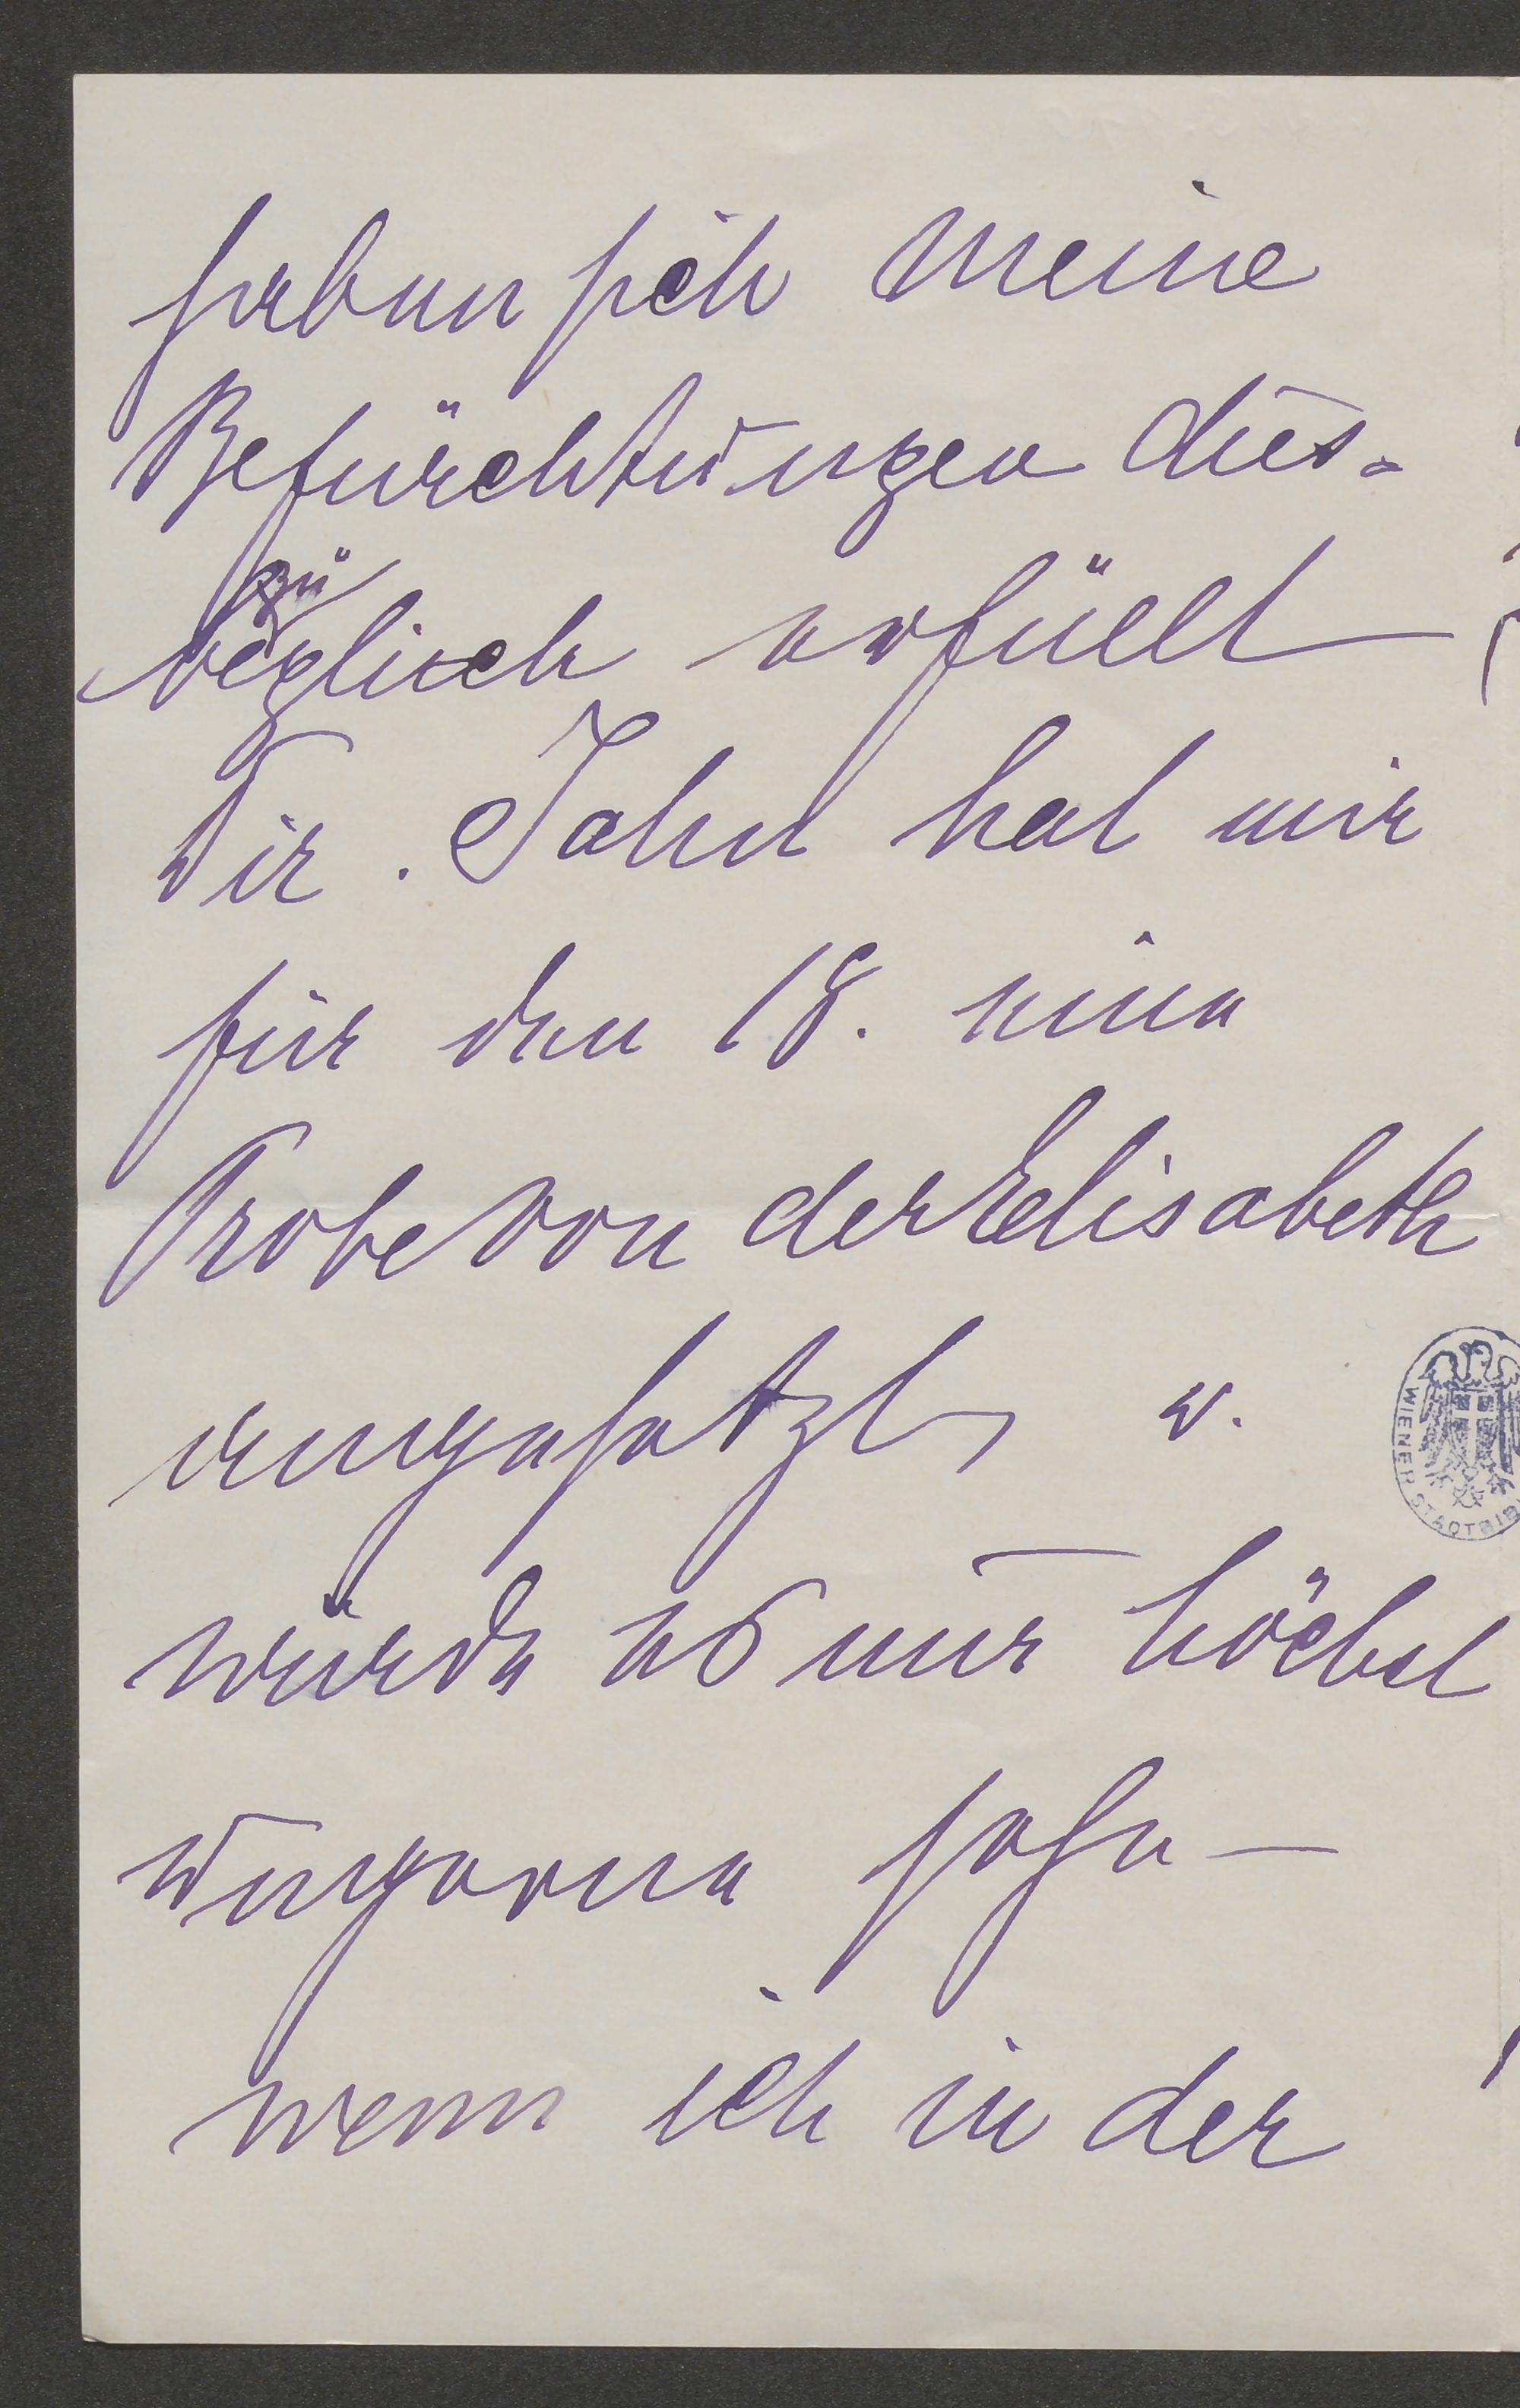 haben sich meine
Befürchtungen dies-
bezüglich erfüllt
Dir. Jahn hat mir
für den 18. eine
Probe von der Elisabeth
angesetzt, u.
würde es mir höchst
ungerne sehe —
wenn ich in der
WIENER STADTBIB